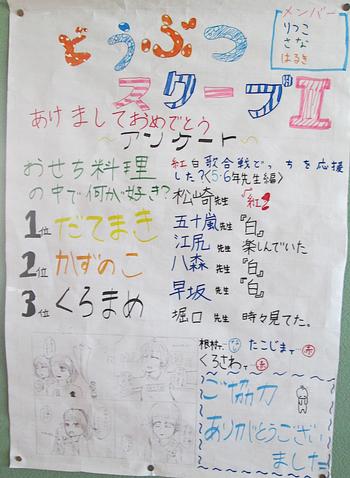 どうぶつ
スクープⅡ
メンバー
りつこ
さな
はるき
あけましておめでとう
〜アンケート〜
おせち料理
の中で何が好き?
1位 だてまき
2位 かずのこ
3位 くろまめ
紅白歌合戦でどっちを応援
した?〈5・6年先生編〉
松崎先生『紅』
五十嵐先生『白』
江尻先生 楽しんでいた
八森先生『白』
早坂先生『白』
堀口先生 時々見てた。
たこじまて
くろさわて
ご協力
ありがとうござい
ました